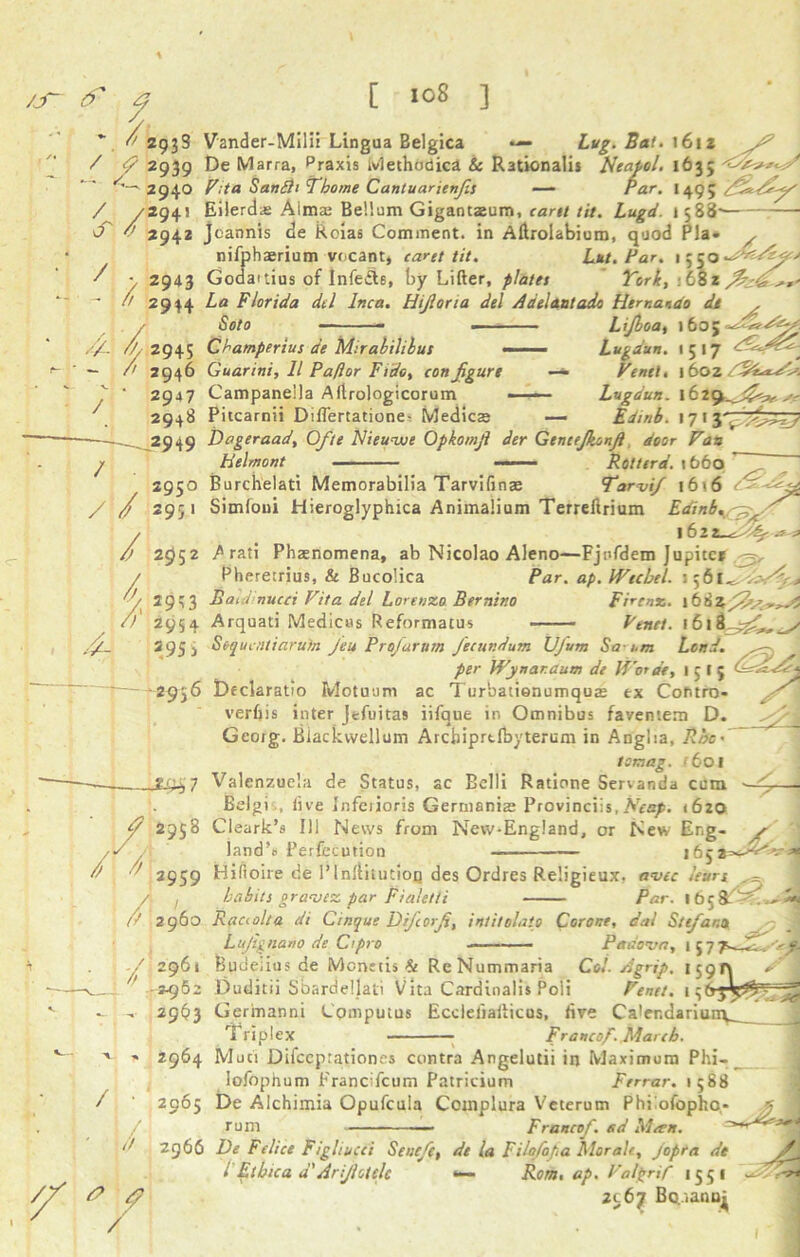 [ 108 ]
2938 Vander-Milii Lingua Belgica — Lug. Bat. 1612
2939 De Marra, Praxis Methodica & Rationalis Neapol. 1635
2940 Vita Sancti Thome Cantuariensis — Par. 1495
2941 Eilerdæ Almæ Bellum Gigantæum, caret tit. Lugd. 1588
2942 Joannis de Roias Comment. in Astrolabium, quod Pla-
nisphærium vocant, caret tit. Lut. Par. 1550
2943 Godartius of Insects, by Lister, plates York, 1682
2944 La Florida del Inca. Historia del Adelantado Hernando de
Soto — — Lisboa, 1605
2945 Champerius de Mirabilibus — Lugdun. 1517
2946 Guarini, Il Pastor Fido, con figure — Venet. 1602
2947 Campanella Astrologicorum — Lugdun. 1629
2948 Pitcarnii Dissertationes Medicæ — Edinb. 1713
2949 Dageraad, Ofte Nieuwe Opkomst der Genteskonst, door Van
Helmont — — Rotterd. 1660
2950 Burchelati Memorabilia Tarvisinæ Tarvis 1616
2951 Simsoni Hieroglyphica Animalium Terrestrium Edinb.
1622
2952 Arati Phænomena, ab Nicolao Aleno—Ejusdem Jupiter
Pheretrius, & Bucolica Par. ap. Wechel. 1561
2953 Baldinucci Vita del Lorenzo Bernino Firenz. 1682
2954 Arquati Medicus Reformatus — Venet. 1618
2955 Sequentiarum seu Prosarum secundum Usum Sarum Lond.
per Wynandum de Worde, 1515
2956 Declaratio Motuum ac Turbationumquæ ex Contro-
versiis inter Jesuitas iisque in Omnibus faventem D.
Georg. Blackwellum Archipresbyterum in Anglia, Rho-
tomag. 1601
2957 Valenzuela de Status, ac Belli Ratione Servanda cum
Belgis, sive Inferioris Germaniæ Provinciis, Neap. 1620
2958 Cleark's Ill News from New-England, or New Eng-
land's Persecution — 1652
2959 Histoire de l'Institution des Ordres Religieux, avec leurs
habits gravez par Fialetti — Par. 1658
2960 Raccolta di Cinque Discorsi, intitolato Corone, dal Stefano
Lusignano de Cipro — Padova, 1577
2961 Budelius de Monetis & Re Nummaria Col. Agrip. 1591
2962 Duditii Sbardellati Vita Cardinalis Poli Venet. 1563
2963 Germanni Computus Ecclesiasticus, sive Calendarium
Triplex — Francof. March.
2964 Muti Disceptationes contra Angelutii in Maximum Phi-
losophum Franciscum Patricium Ferrar. 1588
2965 De Alchimia Opuscula Complura Veterum Philosopho-
rum — Francof. ad Mæn.
2966 De Felice Figliucci Senese, de la Filosofia Morale, sopra de
l'Ethica d'Aristotele — Rom. ap. Valgris 1551
2967 Boñanni